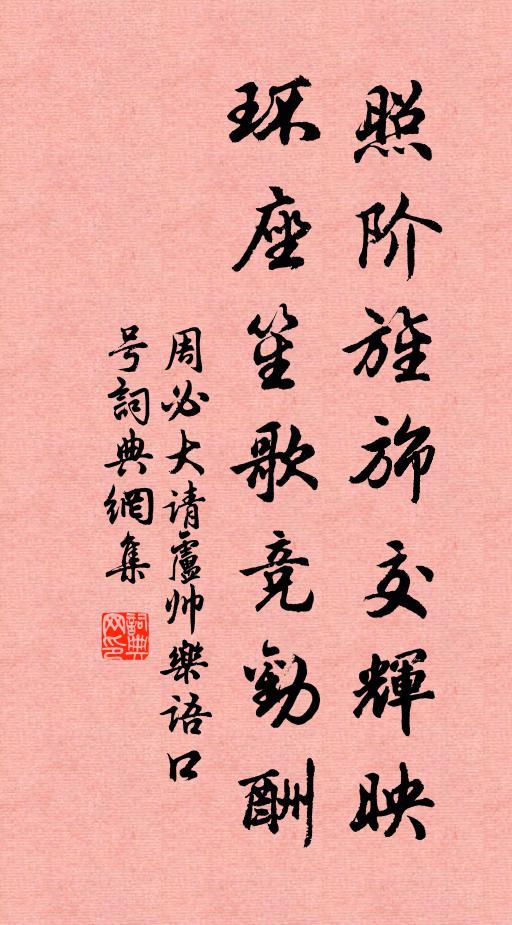 照阶旌旆交輝映
环座笙歌竞勸酬
周必大请盧帅樂语口
号詞典網集
詞典
网印